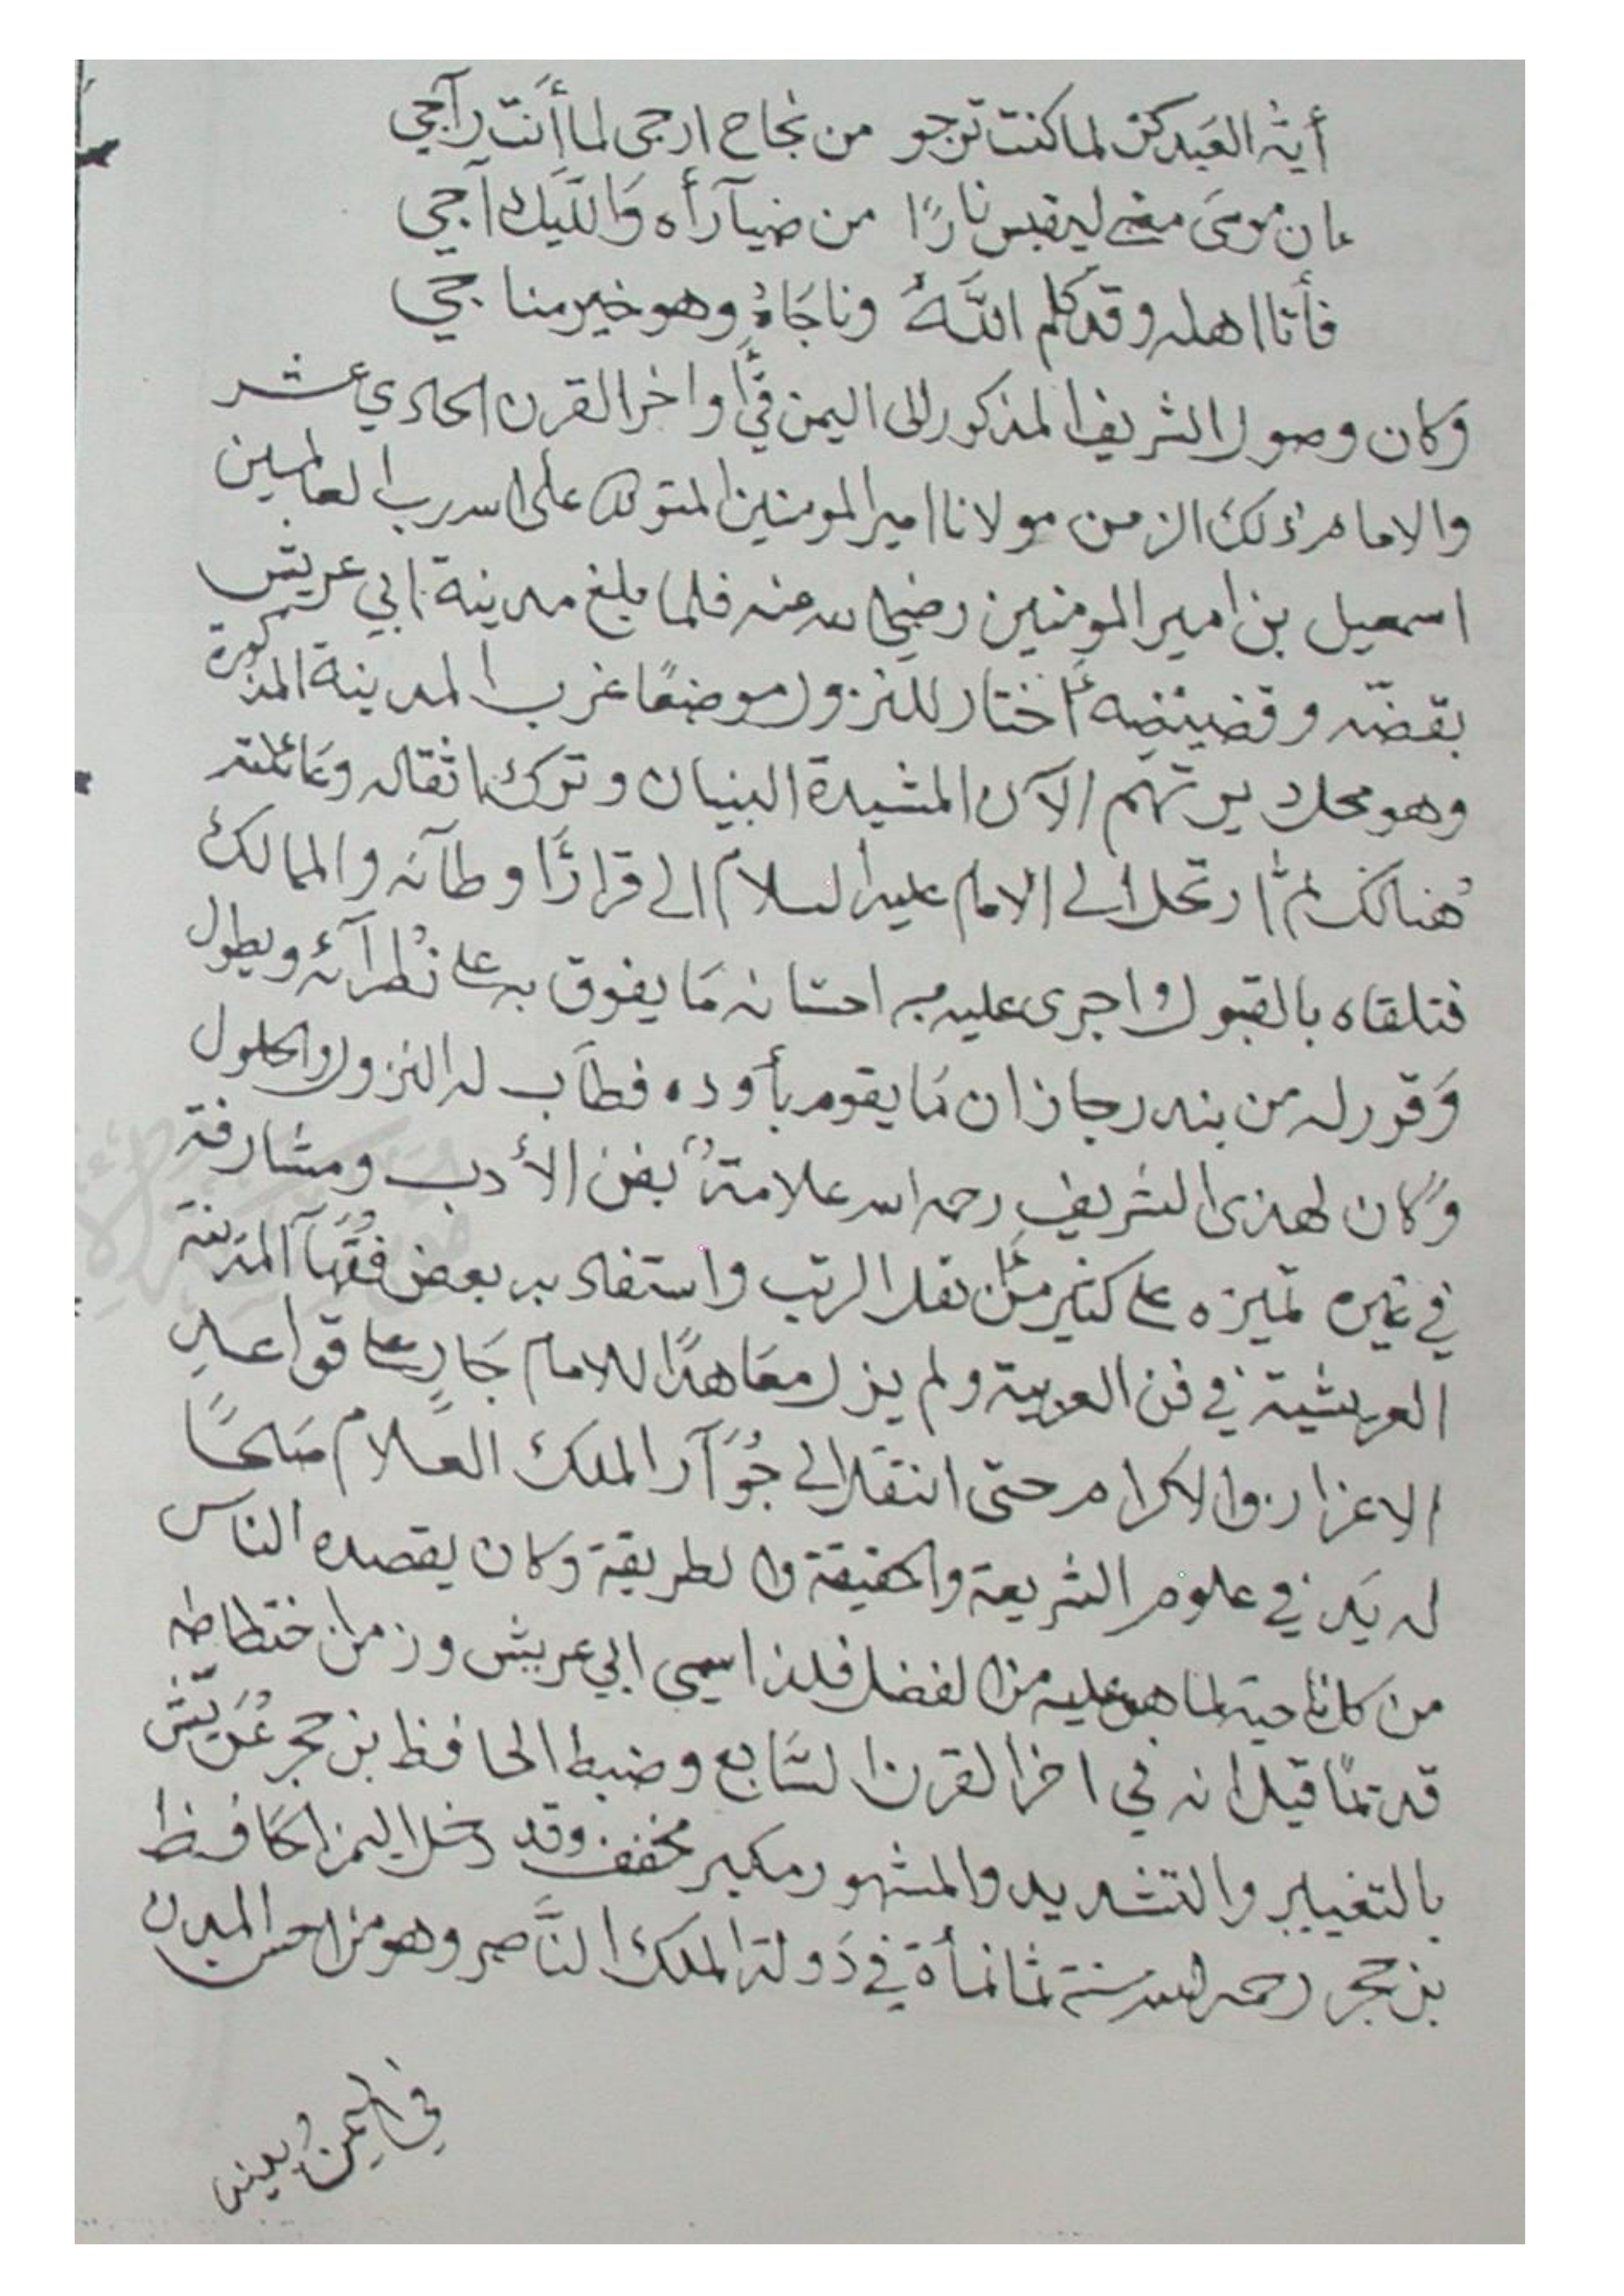 أيه العبد كن لما كنت ترجو من نجاح ارجى لما أنت رآجي
ان موسى مضى ليقبس نارًا من ضيآ رأه وَاللّيل آجي
فأتا اهله وقد كلم اللَّهُ وناجَاهُ وهو خير مناجي
وكان وصول الشريف المذكور الى اليمن في أواخر القرن الحادي عشر
والامام ذلك الزمن مولانا امير المومنين المتوكل على الله رب العالمين
اسمعيل بن امير المومنين رضي الله عنه فلما بلغ مدينة ابي عريش
بقضّه وقضيضه أختار للنزول موضعًا غرب المدينة المذكورة
وهو محل ديرتهم الآن المشيدة البنيان وترك اثقاله وعائلته
هُنالك ثم ارتحل الى الامام عليه السلام الى قرار أوطآنه والممالك
فتلقاه بالقبول واجرى عليه من احسانه مَا يفوق به على نُظرآئه ويطول
وَقرر له من بندر جازان مَا يقوم بأوده فطاب له النزول والحلول
وَكان لهذى الشريف رحمه الله علامة بفن الأدب ومشارفة
في غيره تميزه على كثير من نقل الرتب واستفاد به بعض فُقَهآ المدينة
العريشية في فن العربية ولم يزل معَاهدًا للامام جَارٍ على قواعد
الاعزاز والاكرام حتى انتقل الى جُوَآر الملك العلام صَلحًا
له يَد في علوم الشريعة والحقيقة والطريقة وكان يقصده الناس
من كل ناحية لما هو عليه من الفضل فلذا سمي ابي عريش وزمن اختطاطه
قديمًا قيل انه في اخر القرن السَّابع وضبط الحافظ بن حجر عُرَيّش
بالتغيير والتشديد والمشهور مكبر مخفف وقد دخل اليمن الحَافظ
بن حجر رحمه الله سنة ثمانمأة في دَولة الملك النَّاصر وهو من احسن المدن
في اليمن